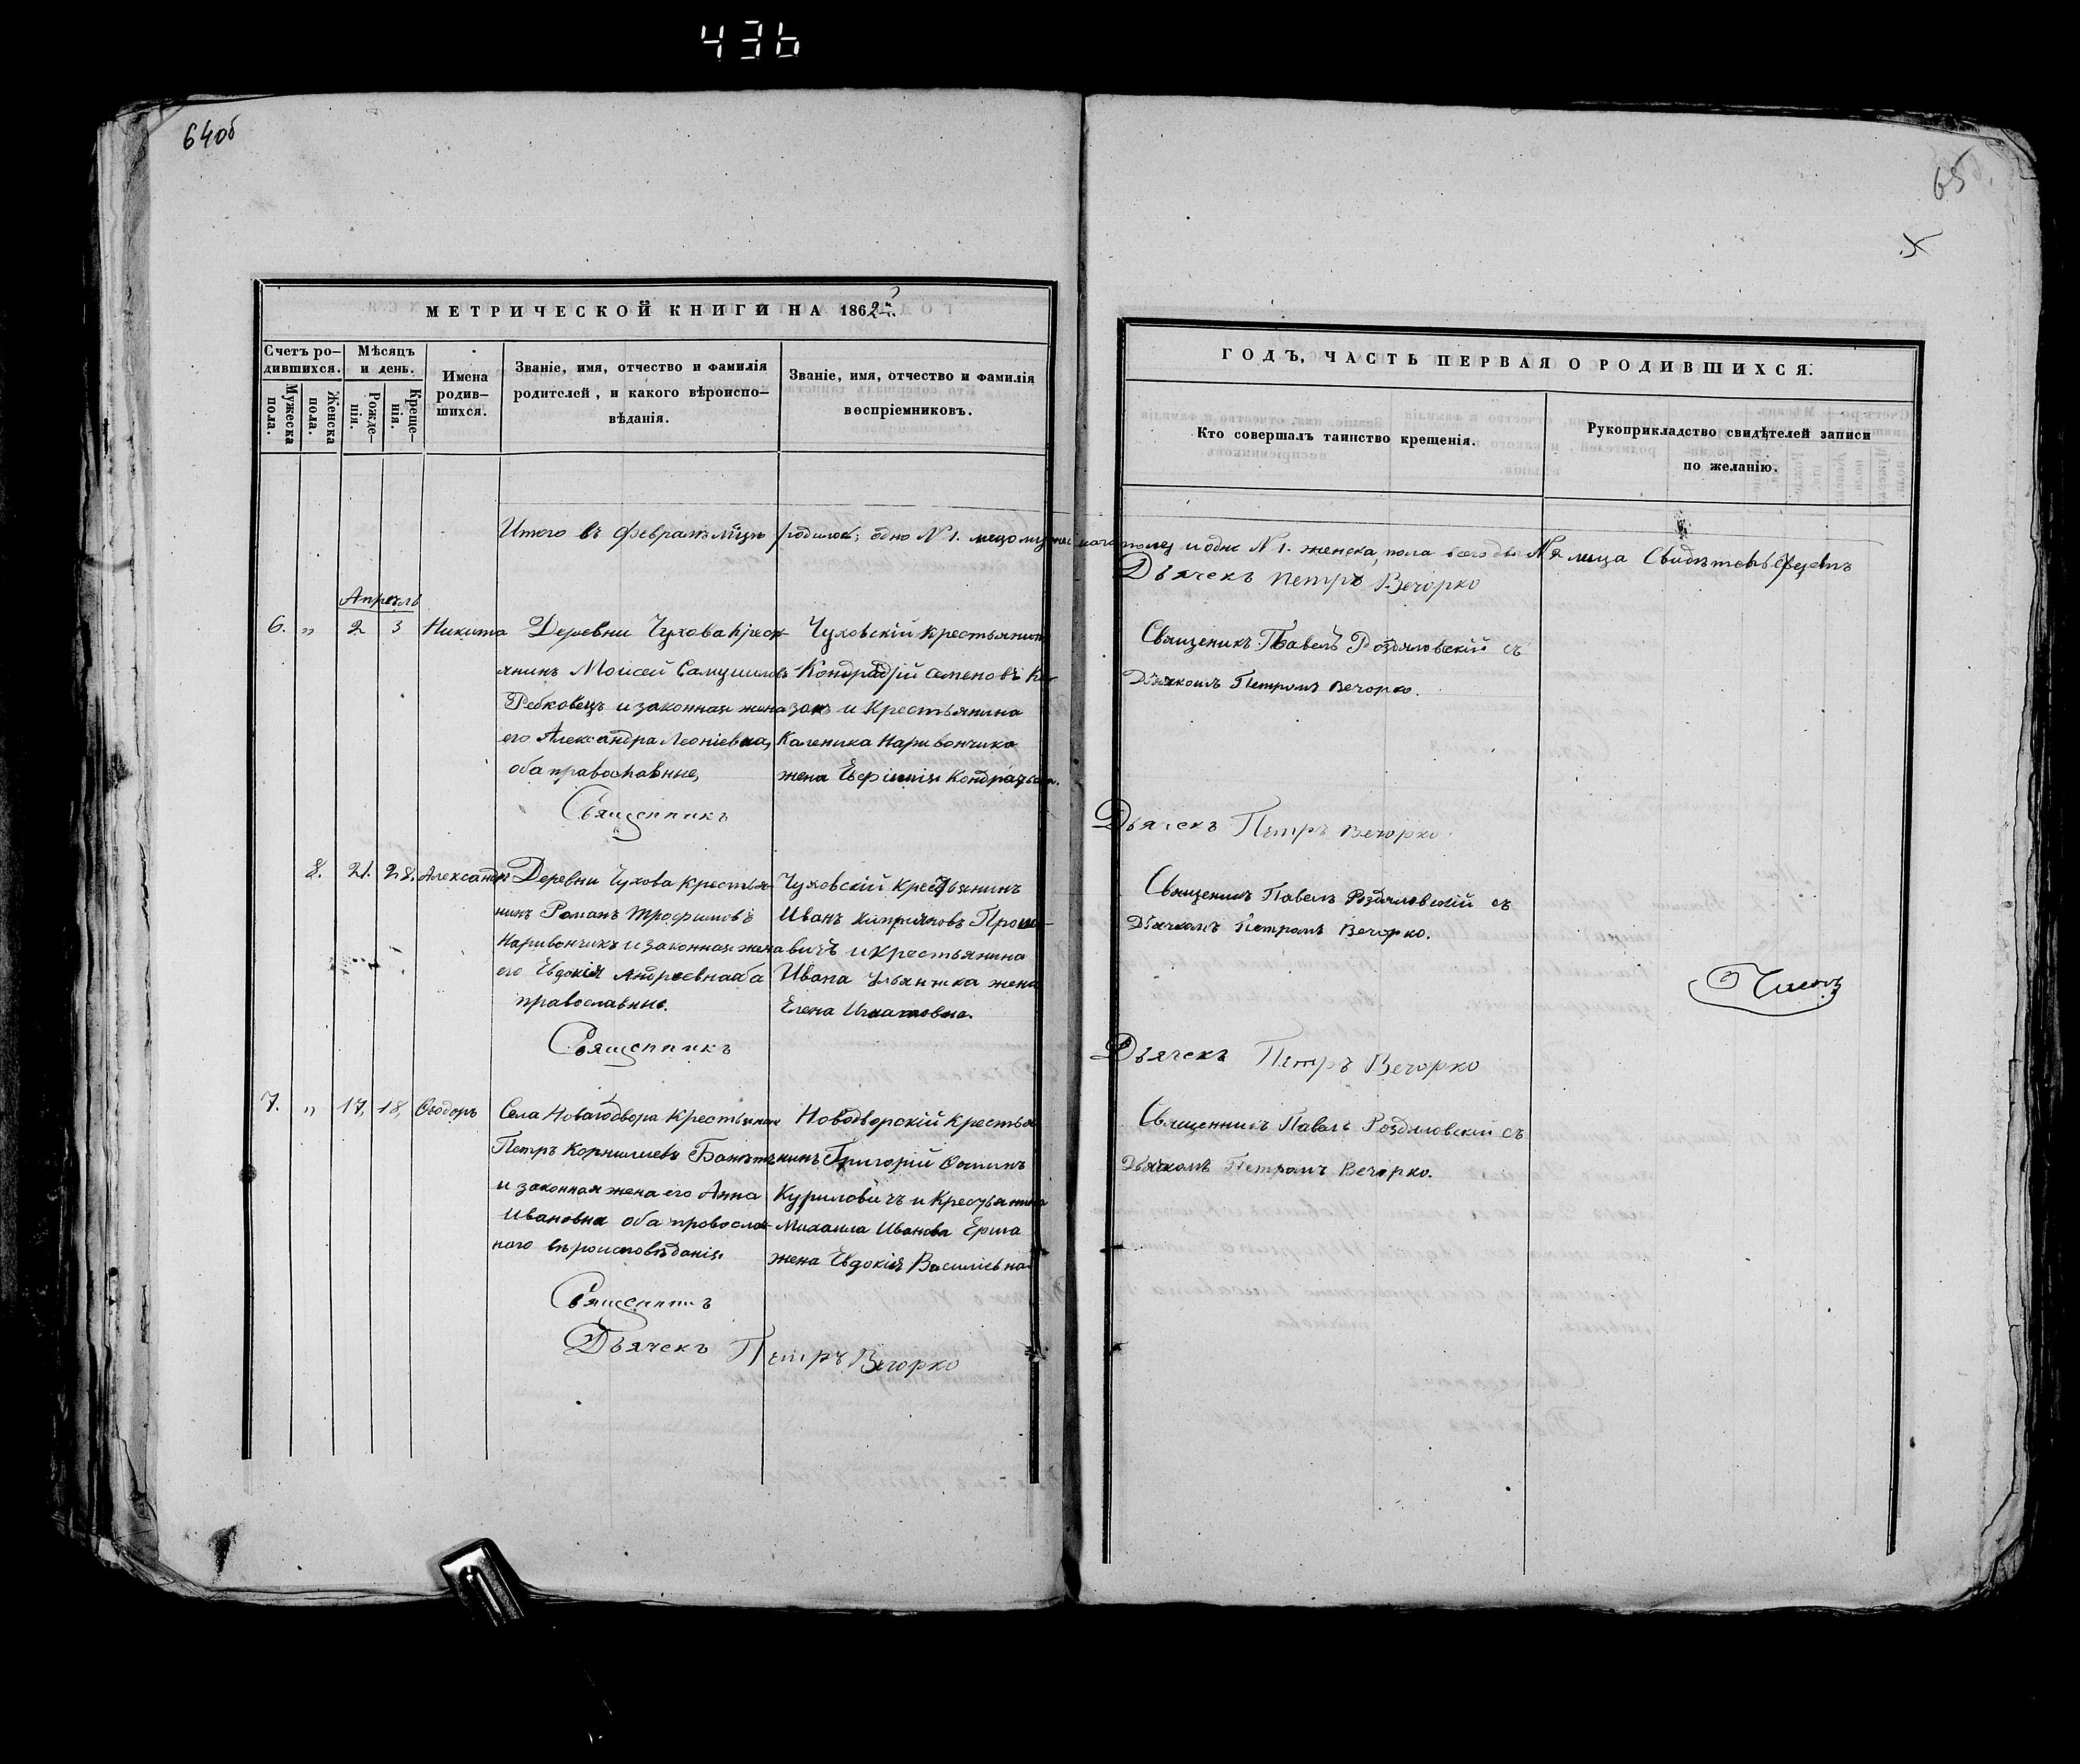 436
64об
МЕТРИЧЕСКОЙ КНИГИ НА 1862й
Счетъ ро-
дившихся.
Мѣсяцъ
и день.
Мужеска
пола.
Женска
пола.
Рожде-
нія.
Креще-
нія.
Имена
родив-
шихся.
Званіе, имя, отчество и фамилія
родителей, и какого вѣроиспо-
вѣданія.
Званіе, имя, отчество и фамилія
воспріемниковъ.
Итого въ Февралѣ мцѣ родилось; одно N 1.
Апрѣль
6. " 2 3 Никита
Деревни Чухова Крест-
янинъ Моисей Самуиловъ
Ребковецъ и законная жена
его Александра Леоніевна,
оба православные,
Чуховскій Крестьянинъ
Кондратій Семеновъ Ко-
закъ и Крестьянина
Каленика Наривончика
жена Евфимія Кондратьева.
Священникъ
8. 21. 28. Александра
Деревни Чухова Крестья-
нинъ Романъ Трофимовъ
Наривончикъ и законная жена
его Евдокія Андреевна оба
православные.
Чуховскій Крестьянинъ
Иванъ Кипріяновъ
вичъ и крестьянина
Ивана жена
Елена Игнатовна.
Священникъ
7. " 17. 18. Ѳеодоръ
Села Новагодвора Крестьянинъ
Петръ Корнилиевъ
и законная жена его Анна
Ивановна оба православ-
наго вѣроисповѣданія.
Новодворскій Крестья-
нинъ Григорій Осиповъ
Куриловичъ и Крестьянина
Михаила Иванова Ерша
жена Евдокія Василіевна
Священникъ
Дьячекъ Петръ Вечорко
65
ГОДЪ, ЧАСТЬ ПЕРВАЯ О РОДИВШИХСЯ.
Кто совершалъ таинство крещенія.
Рукоприкладство свидѣтелей записи
по желанію.
и одно N 1. женска пола всего два N 2 лица
Дьячекъ Петръ Вечорко
Священикъ Павелъ Роздяловскій съ
Дьячкомъ Петромъ Вечорко.
Дьячекъ Петръ Вечорко
Священикъ Павелъ Роздяловскій съ
Дьячкомъ Петромъ Вечорко.
Дьячекъ Петръ Вечорко
Священникъ Павелъ Роздяловскій съ
Дьячкомъ Петромъ Вечорко.